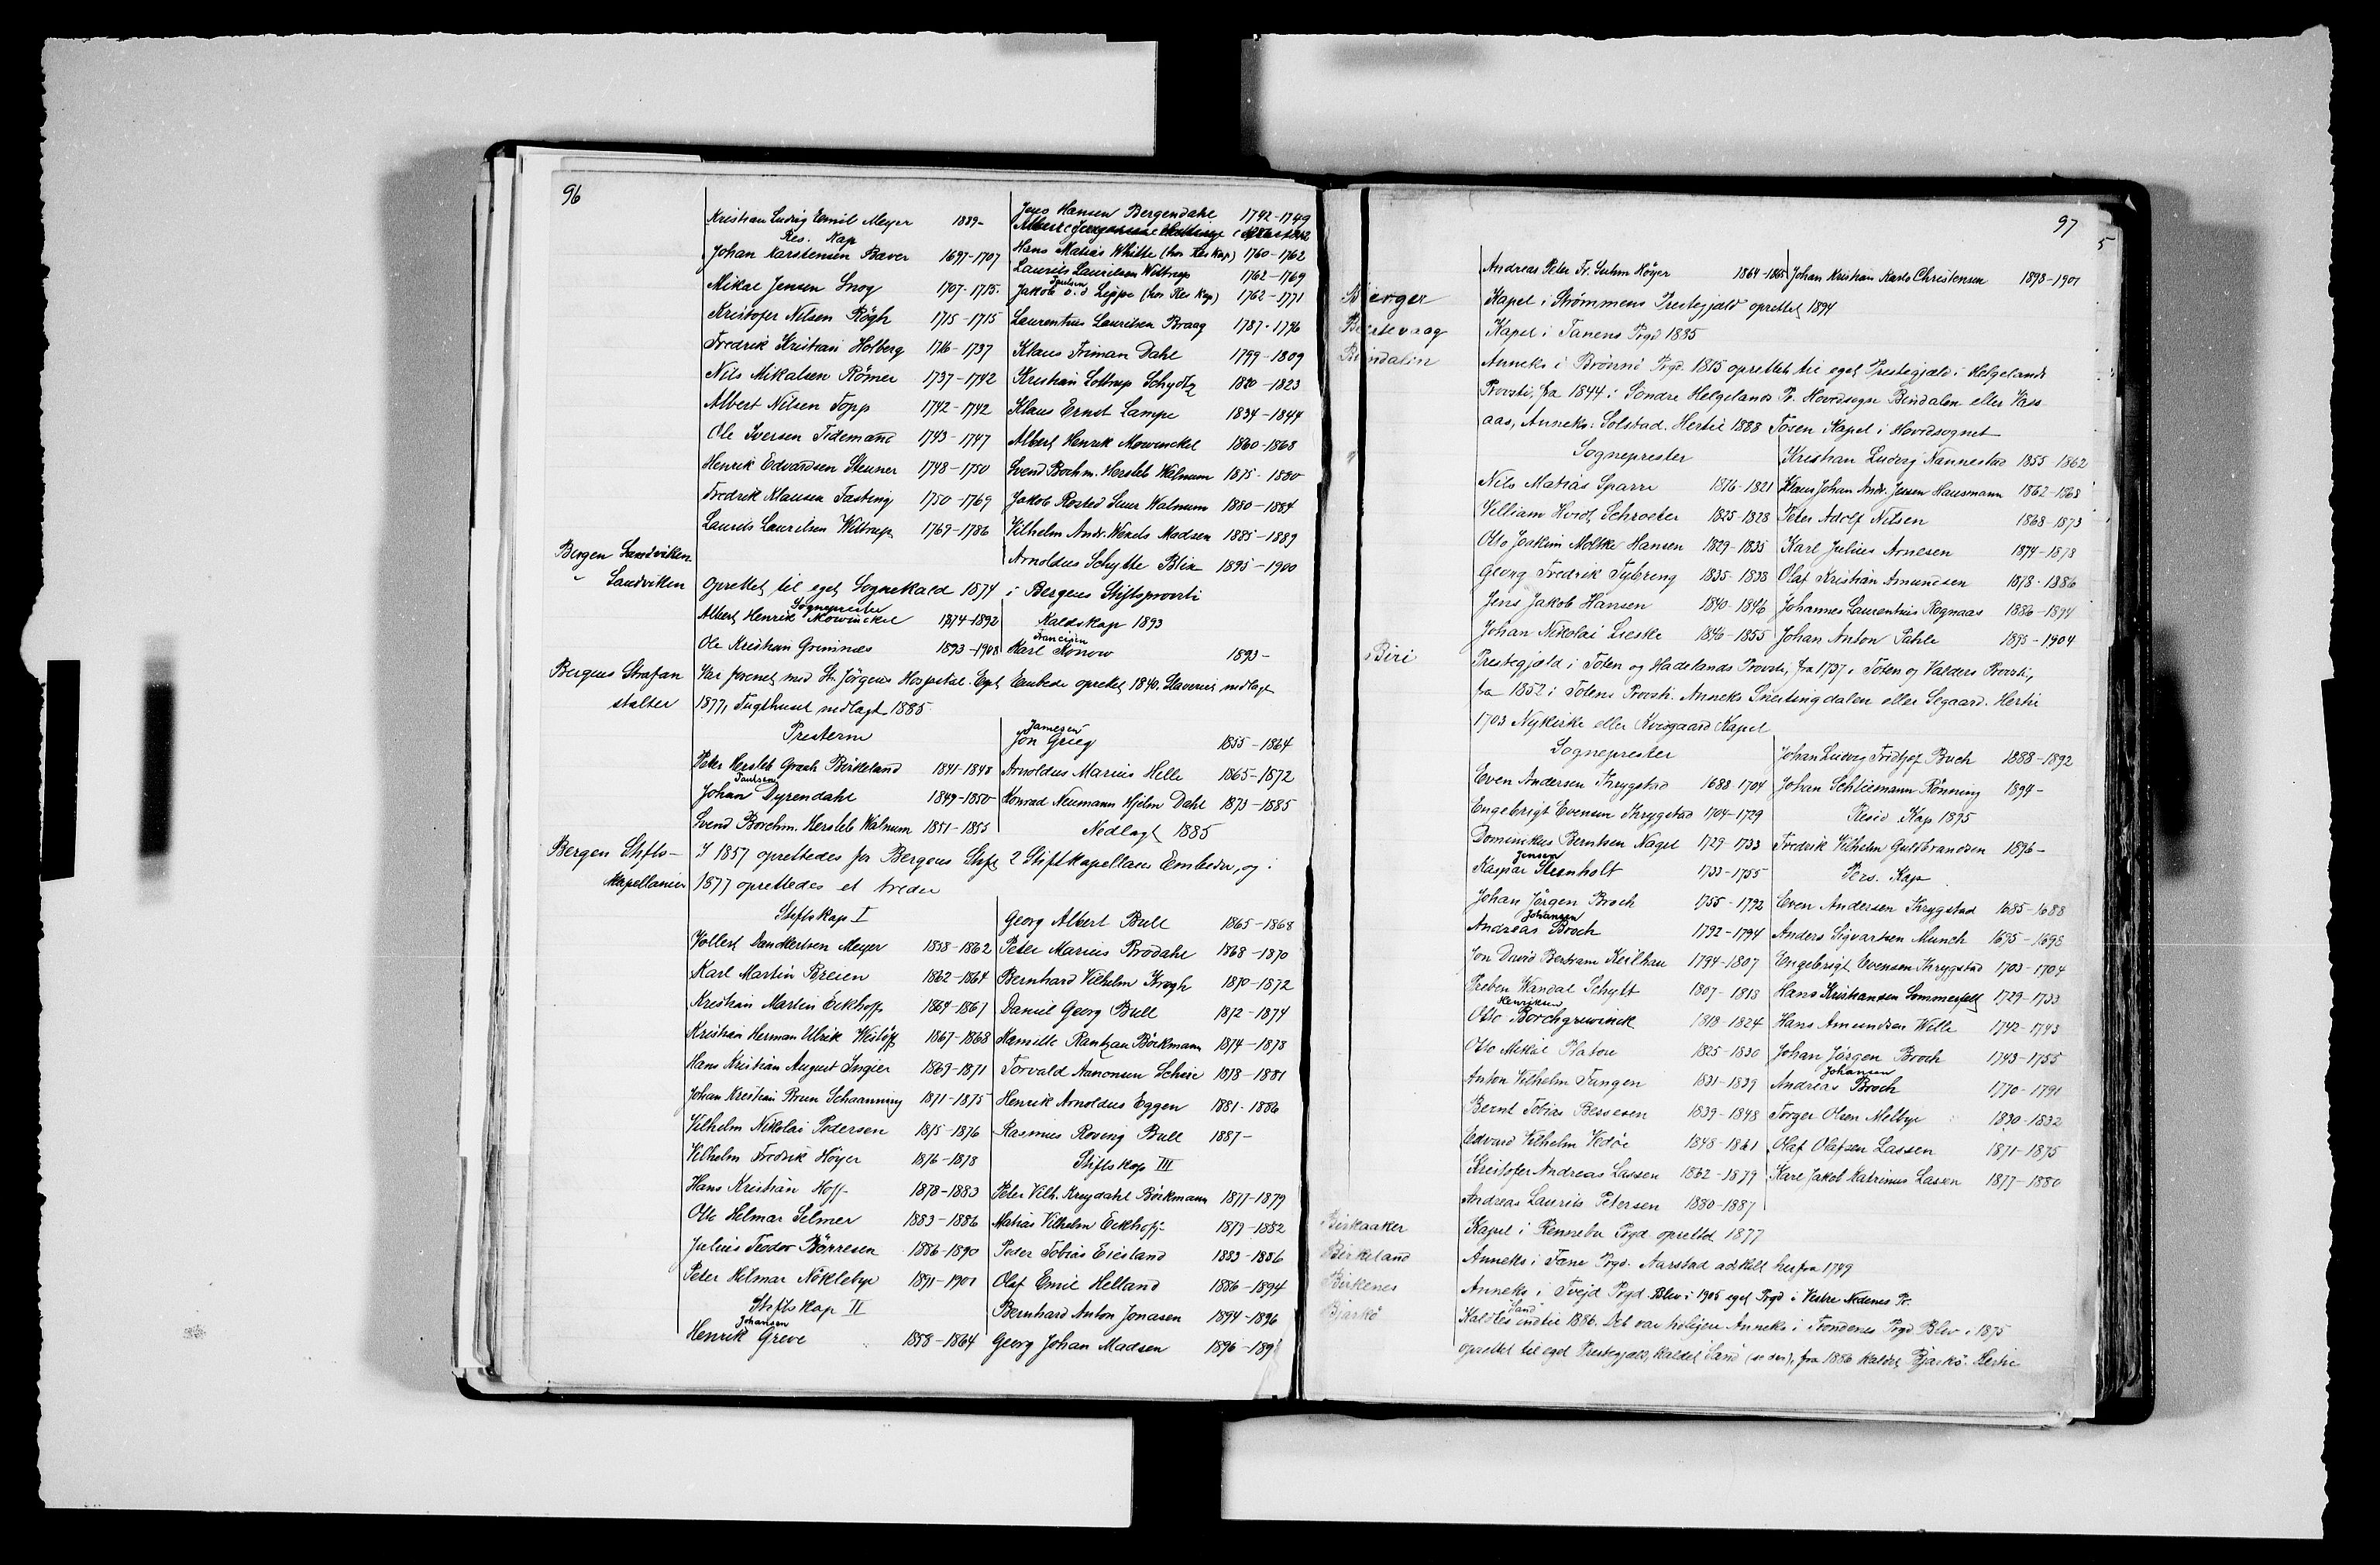 96
Kristian Ludvig Emil Meyer 1889-
Res. Kap
Johan Karstensen Baver 1697-1707
Mikal Jensen Snog 1707-1715
Kristofer Nilsen Rögh 1715-1715
Fredrik Kristian Holberg 1716-1737
Nils Mikalsen Römer 1737-1742
Albert Nilsen Topp 1742-1742
Ole Iversen Tidemand 1743-1747
Henrik Edvardsen Steuner 1748-1750
Fredrik Klausen Fasting 1750-1769
Laurits Lauritsen Wittrup 1769-1786
Jens Hansen Bergendahl 1742-1749
Hans Matias Whitte (hos Res Kap) 1760-1762
Laurits Lauritsen Wittrup 1762-1769
Jakob Paulsen v. d Lippe (hos Res Kap) 1762-1771
Laurentius Lauritsen Praag 1787-1796
Klaus Friman Dahl 1799-1809
Kristian Lottrup Schydtz 1820-1823
Klaus Ernst Lampe 1834-1844
Albert Henrik Mowinckel 1860-1868
Svend Bochm. Hersleb Walnum 1875-1880
Jakob Rosted Suur Walnum 1880-1884
Vilhelm Andr. Wexels Madsen 1885-1889
Arnoldus Schytte Blix 1895-1900
Bergen Sandviken
" Sandviken oprettet til eget Sognekald 1874 i Bergens Stiftsprovsti
Sogneprester
Albert Henrik Mowinckel 1874-1892
Ole Kristian Grimnes 1893-1908
Kaldskap 1893
Karl Francisen Konow 1893-
Bergens Strafan Var forenet med St. Jörgens Hospital. Eget Embede oprettet 1840. Slaveriet nedlagt
stalter 1877, Tugthuset nedlagt 1885
Presterne
Peter Hersleb Graah Birkeland 1841-1848
Johan Paulsen Dyrendahl 1849-1850
Svend Borchm. Hersleb Walnum 1851-1855
Jon Jamesen Grieg 1855-1864
Arnoldus Marius Helle 1865-1872
Konrad Neumann Hjelm Dahl 1873-1885
Nedlagt 1885
Bergen Stifts- I 1857 oprettedes for Bergens Stift 2 Stiftkapellaner Embeder, og i
kapellanier 1877 oprettedes et tredie
Stiftskap I
Vollert Danckertsen Meyer 1858-1862
Karl Martin Breien 1862-1864
Kristian Martin Eckhoff 1864-1867
Kristian Herman Ulrik Wislöff 1867-1868
Hans Kristian August Ingier 1869-1871
Johan Kristian Brun Schaanning 1871-1875
Vilhelm Nikolai Pedersen 1875-1876
Vilhelm Fredrik Höyer 1876-1878
Hans Kristian Hoff 1878-1883
Otto Hilmar Selmer 1883-1886
Julius Teodor Börresen 1886-1890
Peter Hilmar Nöklebye 1891-1901
Stiftskap II
Henrik Johansen Greve 1858-1864
Georg Albert Bull 1865-1868
Peter Marius Brodahl 1868-1870
Bernhard Vilhelm Krogh 1870-1872
Daniel Georg Bull 1872-1874
Kamillo Rantzau Böckmann 1874-1878
Torvald Aanonsen Schive 1878-1881
Henrik Arnoldus Eggen 1881-1886
Rasmus Roving Bull 1887-
Stiftskap III
Peter Vilh. Kreydahl Böckmann 1877-1879
Matias Vilhelm Eckhoff 1879-1882
Peder Tobias Eiesland 1883-1886
Olaf Emil Helland 1886-1894
Bernhard Anton Jonasen 1894-1896
Georg Johan Madsen 1896-189
97
Andreas Peter Fr. Suhm Höyer 1864-1865
Johan Kristian Karls Christensen 1898-1901
Berger Kapel i Strömmens Prestegjæld oprettet 1894
Berlevaag Kapel i Tanens Pgd 1885
Bindalen Anneks i Brönnö Pgd. 1815 oprettet til eget Prestegjæld i Helgelands
Provsti, fra 1844 i Söndre Helgelands Pr. Hovedsogn Bindalen eller Vass
aas, Anneks: Solstad. Hertil 1888 Tosen Kapel i Hovedsognet
Sogneprester
Nils Matias Sparre 1816-1821
William Hvidt Schroeter 1825-1828
Otto Joakim Moltke Hansen 1829-1835
Georg Fredrik Tybring 1835-1838
Jens Jakob Hansen 1840-1846
Johan Nikolai Lieske 1846-1855
Kristian Ludvig Nannestad 1855-1862
Klaus Johan Andr. Jessen Hausmann 1862-1868
Peter Adolf Nilsen 1868-1873
Karl Julius Arnesen 1874-1878
Olaf Kristian Amundsen 1878-1886
Johannes Laurentius Rognaas 1886-1894
Johan Anton Pahle 1895-1904
Biri Prestegjæld i Toten og Hadelands Provsti, fra 1737 i Toten og Valders Provsti,
fra 1852 i Totens Provsti. Anneks Snertingdalen eller Segaard. Hertil
1703 Nykirke eller Kvisgaard Kapel
Sogneprester
Even Andersen Krygstad 1688-1704
Engebrigt Evensen Krygstad 1704-1729
Dominikus Berntsen Nagel 1729-1733
Kaspar Jensen Steenholt 1733-1755
Johan Jörgen Broch 1755-1792
Andreas Johansen Broch 1792-1794
Jon David Bertram Keilhau 1794-1807
Preben Wandal Schytt 1807-1818
Otto Henriksen Borchgrewinck 1818-1824
Otto Mikkel Platou 1825-1830
Anton Vilhelm Fangen 1831-1839
Bernt Tobias Bessesen 1839-1848
Edvard Vilhelm Vedöe 1848-1861
Kristofer Andreas Lassen 1862-1879
Andreas Laurits Petersen 1880-1887
Johan Ludvig Fridtjof Buch 1888-1892
Johan Schliemann Rönning 1894-
Resid. Kap 1895
Fredrik Vilhelm Guldbrandsen 1896-
Pers. Kap
Even Andersen Krygstad 1685-1688
Anders Sigvartsen Munch 1695-1698
Engebrigt Evensen Krygstad 1703-1704
Hans Kristiansen Sommerfelt 1729-1733
Hans Amundsen Wille 1742-1743
Johan Jörgen Broch 1743-1755
Andreas Johansen Broch 1770-1791
Torger Olsen Melbye 1830-1832
Olaf Olafsen Lassen 1871-1875
Karl Jakob Katrinus Lassen 1877-1880
Birkaaker Kapel i Rennebu Pgd oprettet 1877
Birkeland Anneks i Fane Pgd. Aarstad adskilt herfra 1749
Birkenes Anneks i Tveid Pgd. Blev i 1905 eget Pgd i Vestre Nedenes Pr.
Bjarkö Kaldtes Sand indtil 1886. Det var tidligere Anneks i Trondenes Pgd. Blev i 1875
oprettet til eget Prestegjæld, kaldet Sand (se det), fra 1886 kaldet Bjarkö. Hertil